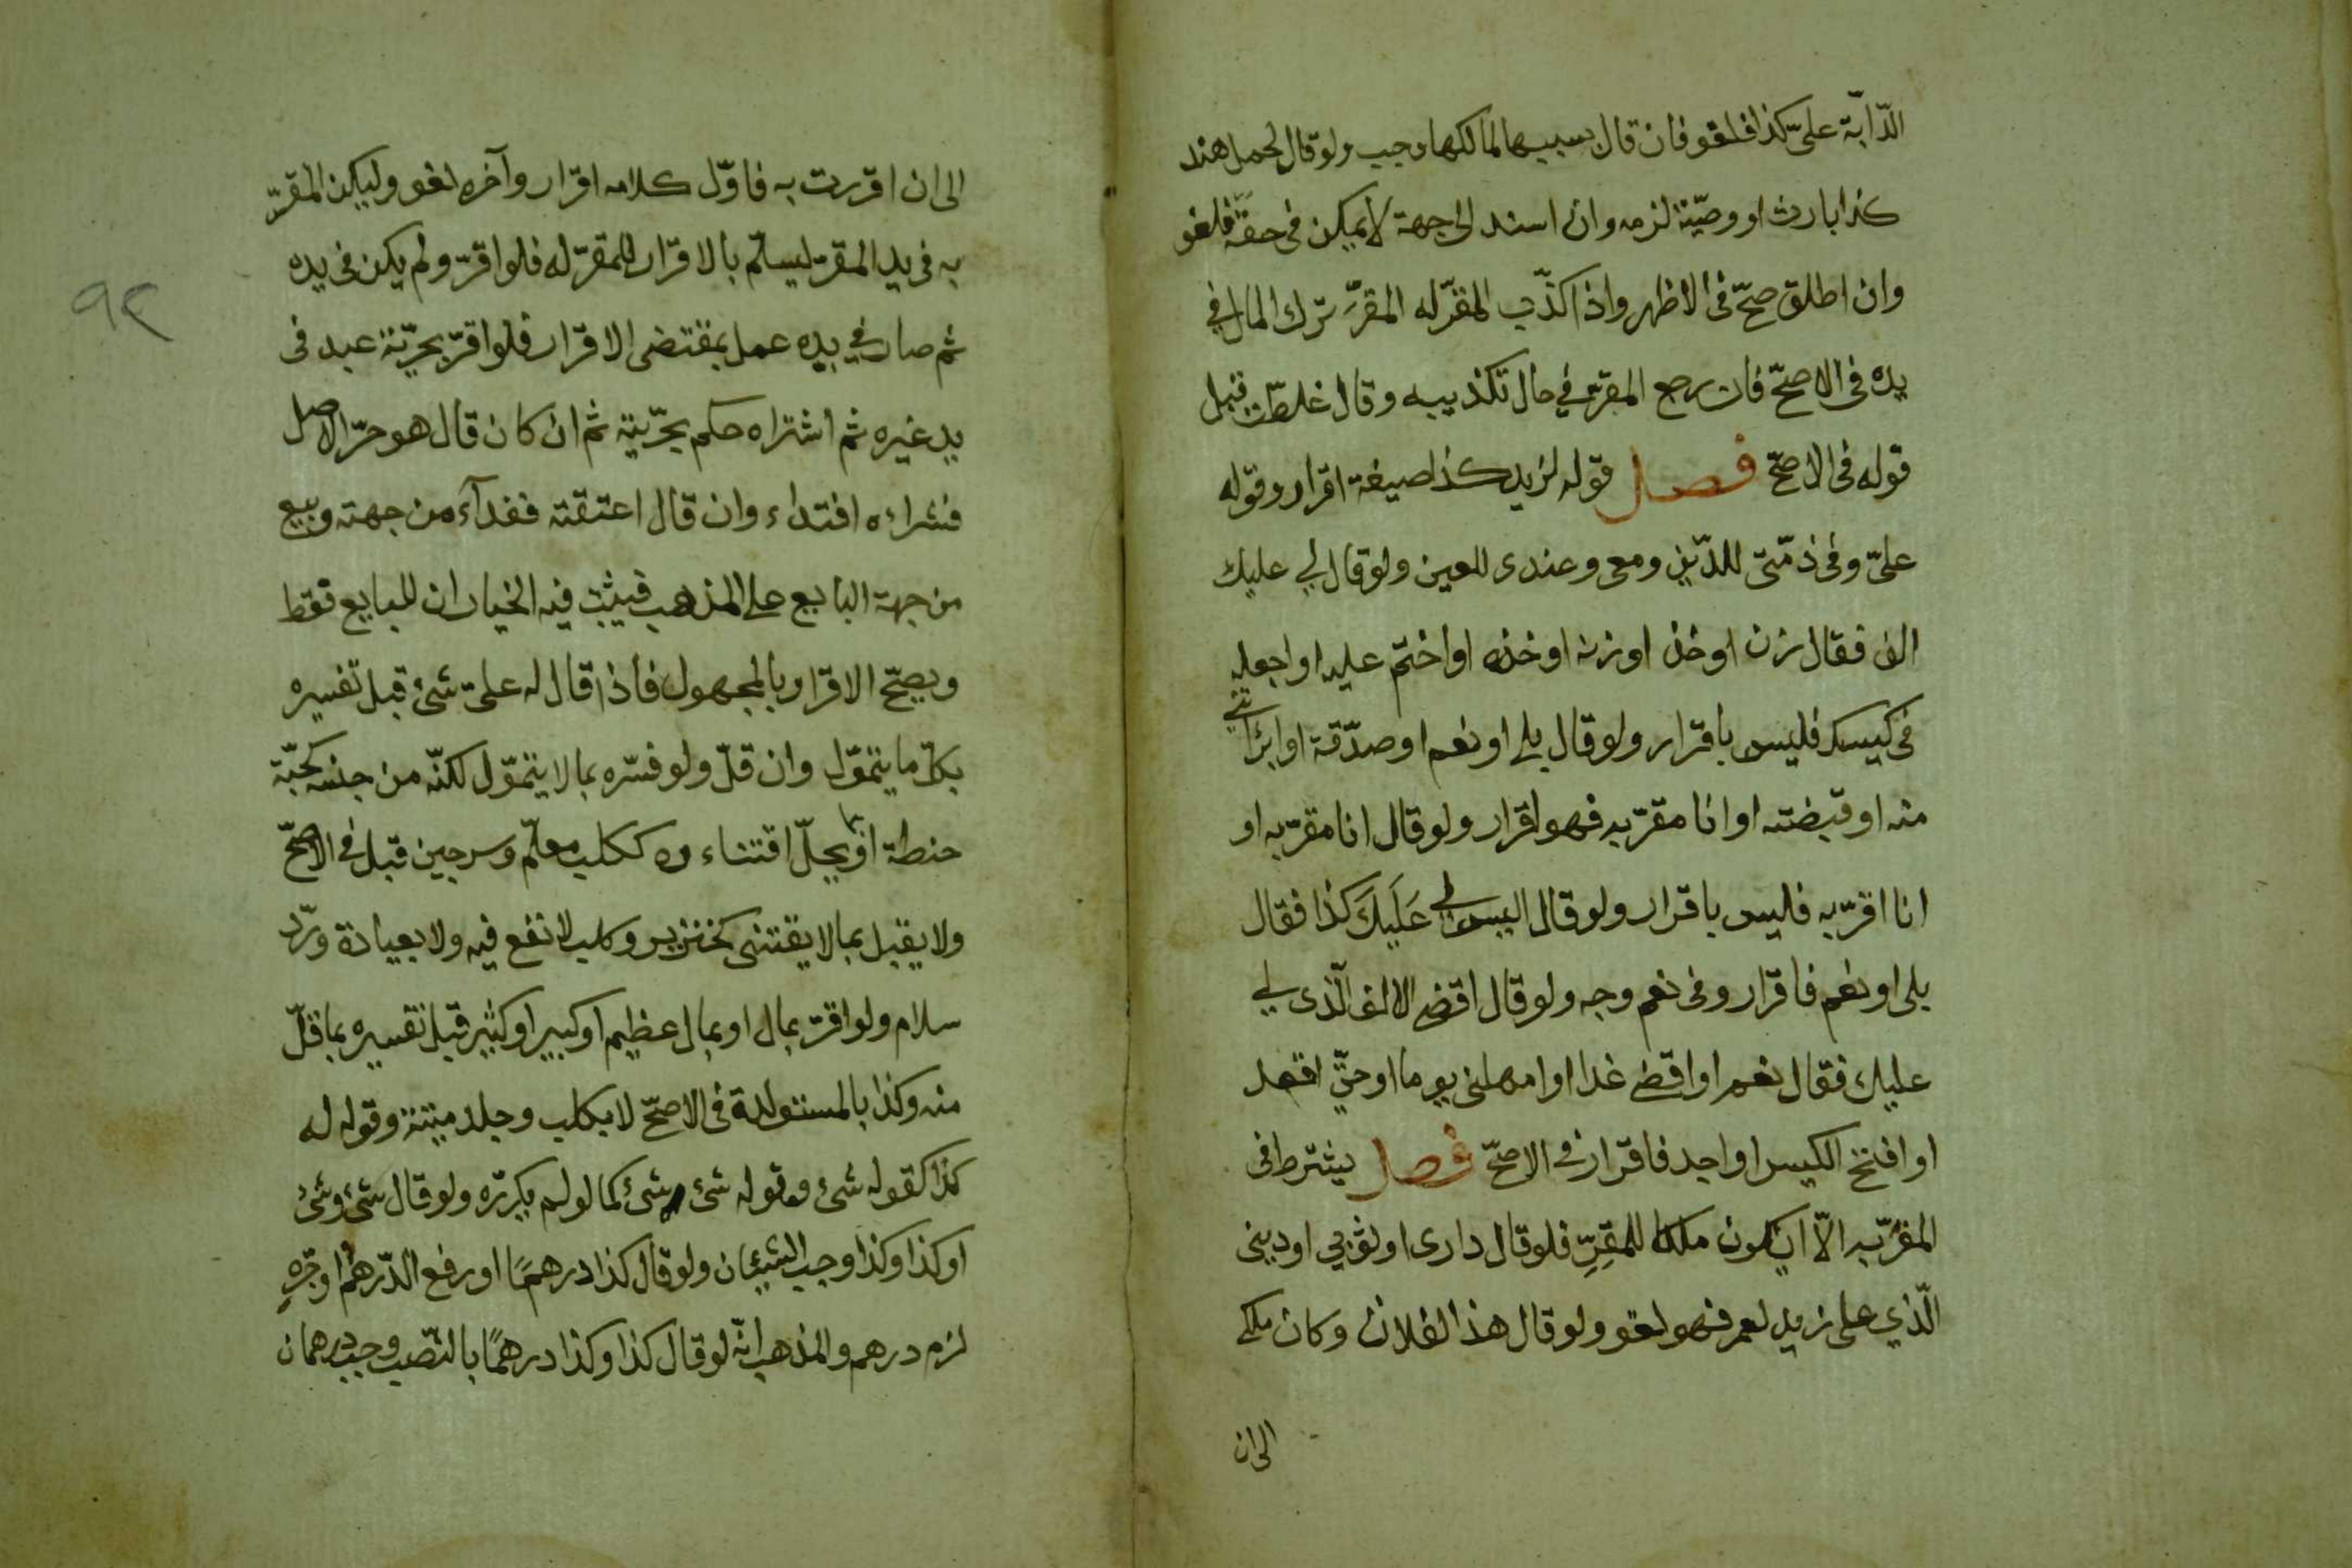 الدّابة علىّ كذا فلغو فان قال بسببها لمالكها وجب ولو قال لحمل هند
كذا بارث او وصيّة لزمه وان اسند الى جهة لا يمكن فى حقّه فلغو
وان اطلق صحّ فى الاظهر واذا كذّب المقرّ له المقرَّ ترك المال في
يده فى الاصحّ فان رجع المقرّ في حال تكذيبه وقال غلطت قبل
قوله فى الاصحّ فصل قوله لزيد كذا صيغة اقرار وقوله
علىّ وفى ذمّتى للدّين ومعى وعندى للعين ولو قال لي عليك
الف فقال زن او خذ او زنه او خذه او اختم عليه او اجعله
فى كيسك فليس باقرار ولو قال بلى او نعم او صدّقة او ابرأتني
منه او قبضته او انا مقرّ به فهو اقرار ولو قال انا مقرّ به او
انا اقرّ به فليس باقرار ولو قال اليس لى عَلَيكَ كذا فقال
بلى او نعم فاقرار وفى نعم وجه ولو قال اقض الالف الّذى لي
عليك فقال نعم او اقضى غدا او امهلنى يوما او حتّى اقعد
او افتح الكيس او اجد فاقرار في الاصحّ فصل يشترط فى
المقرّ به الّا ان يكون ملكا للمقِرِّ فلو قال دارى او ثوبي او دينى
الّذي على زيد لعمر فهو لغو ولو قال هذا لفلان وكان ملكى
الى ان
الى ان اقررت به فاوّل كلامه اقرار وآخره لغو وليكن المقرّ
به فى يد المقرّ ليسلّم بالاقرار للمقرّ له فلو اقرّ ولم يكن فى يده
ثم صار في يده عمل بمقتضى الاقرار فلو اقرّ بحرّية عبد فى
يد غيره ثم اشتراه حكم بحرّيته ثم ان كان قال هو حرّ الاصل
فشراؤه افتداء وان قال اعتقته ففدآء من جهته وبيع
من جهة البايع على المذهب فيثبت فيه الخياران للبايع فقط
ويصحّ الاقرار بالمجهول فاذا قال له علىّ شئ قبل تفسيره
بكلّ ما يتموّل وان قلّ ولو فسّره بما لا يتموّل لكنّه من جنسه كحبّة
حنطة او بما يحلّ اقتناءوه ككلب معلّم وسرجين قبل في الاصحّ
ولا يقبل بما لا يقتنى كخنزير وكلب لا نفع فيه ولا بعيادة وردّ
سلام ولو اقرّ بمال او بمال عظيم او كبير او كثير قبل تفسيره بما قلّ
منه وكذا بالمستولدة فى الاصحّ لا بكلب وجلد ميتة وقوله له
كذا كقوله شئ وقوله شئ شئ كما لو لم يكررّه ولو قال شئ وشئ
او كذا وكذا وجب الشيئان ولو قال كذا درهمًا او رفع الدّرهم او جرّه
لزم درهم والمذهب انّه لو قال كذا وكذا درهمًا بالنّصب وجب درهمان
٩٢